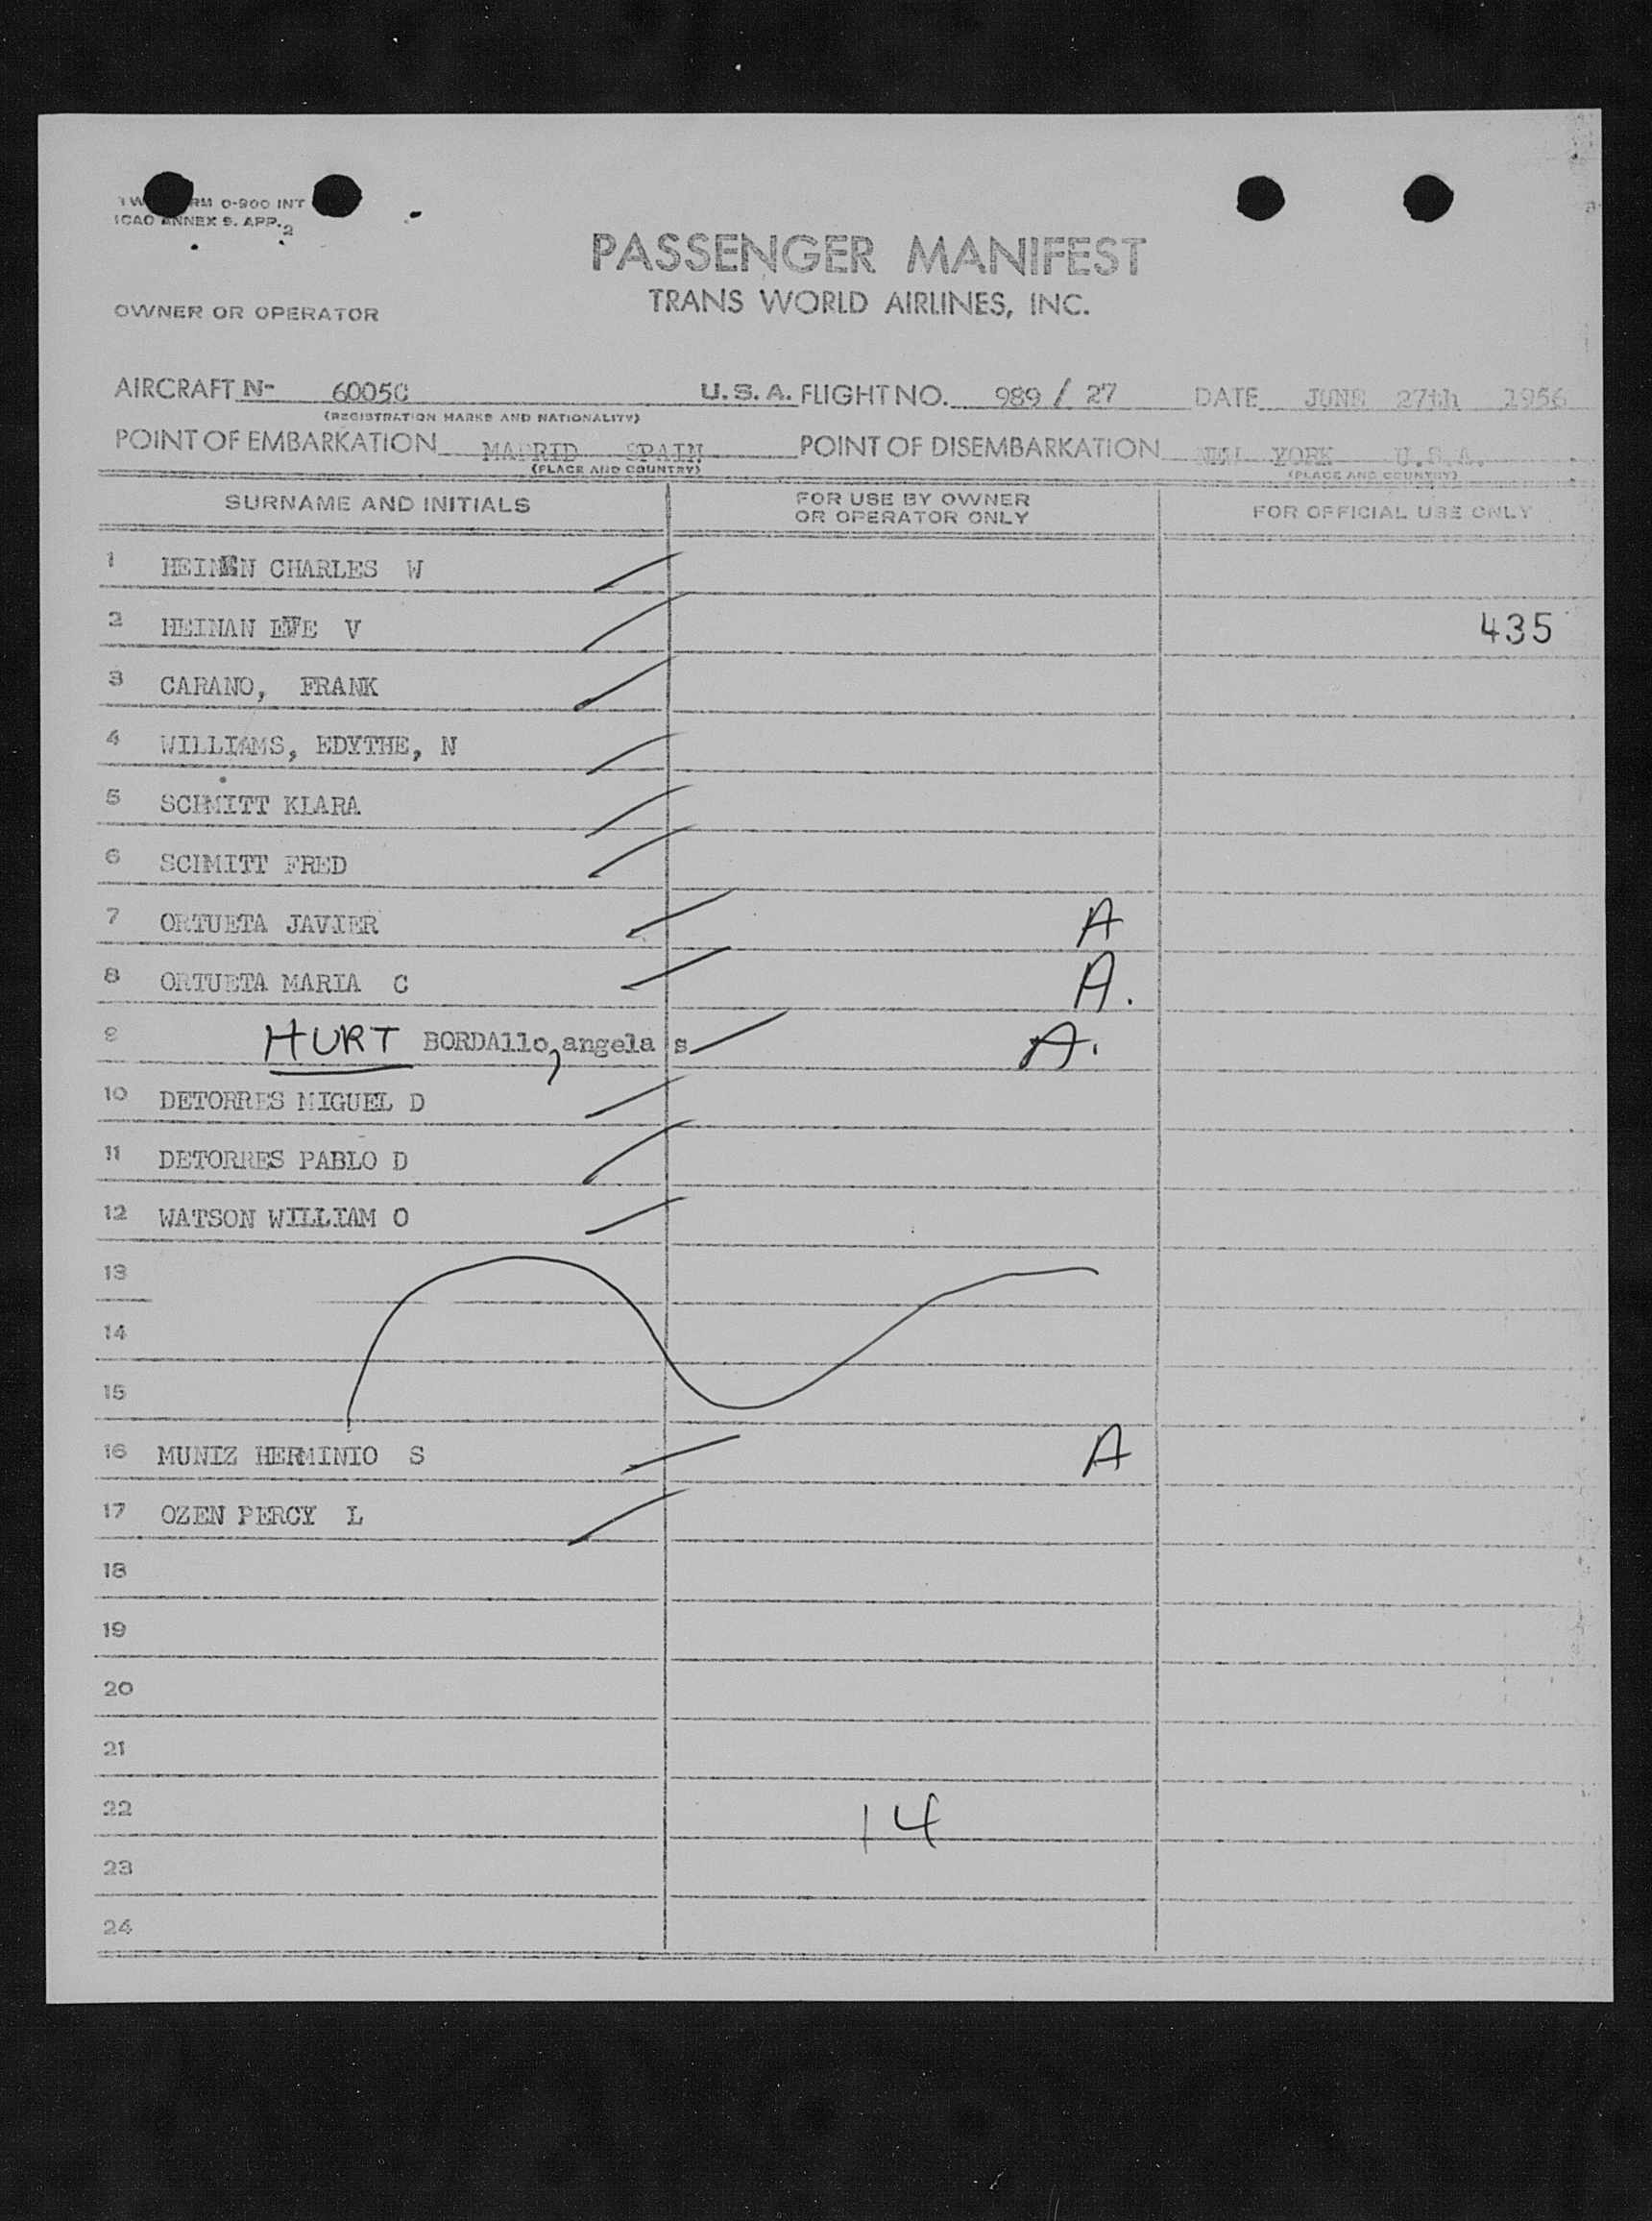 RM 0-900 INT
ICAO ANNEX 9. APP. 2
PASSENGER MANIFEST
TRANS WORLD AIRLINES, INC.
OWNER OR OPERATOR
AIRCRAFT N- 6005C U.S.A. FLIGHT NO. 989 / 27 DATE JUNE 27th 1956
(REGISTRATION MARKS AND NATIONALITY)
POINT OF EMBARKATION MADRID SPAIN POINT OF DISEMBARKATION NEW YORK U.S.A.
(PLACE AND COUNTRY) (PLACE AND COUNTRY)
SURNAME AND INITIALS FOR USE BY OWNER OR OPERATOR ONLY FOR OFFICIAL USE ONLY
1 HEINEN CHARLES W
2 HEINAN EVE V 435
3 CARANO, FRANK
4 WILLIAMS, EDYTHE, N
5 SCHMITT KLARA
6 SCHMITT FRED
7 ORTUETA JAVIER A
8 ORTUETA MARIA C A.
9 HURT BORDAllo, angela s A.
10 DETORRES MIGUEL D
11 DETORRES PABLO D
12 WATSON WILLIAM O
13
14
15
16 MUNIZ HERMINIO S A
17 OZEN PERCY L
18
19
20
21
22 14
23
24